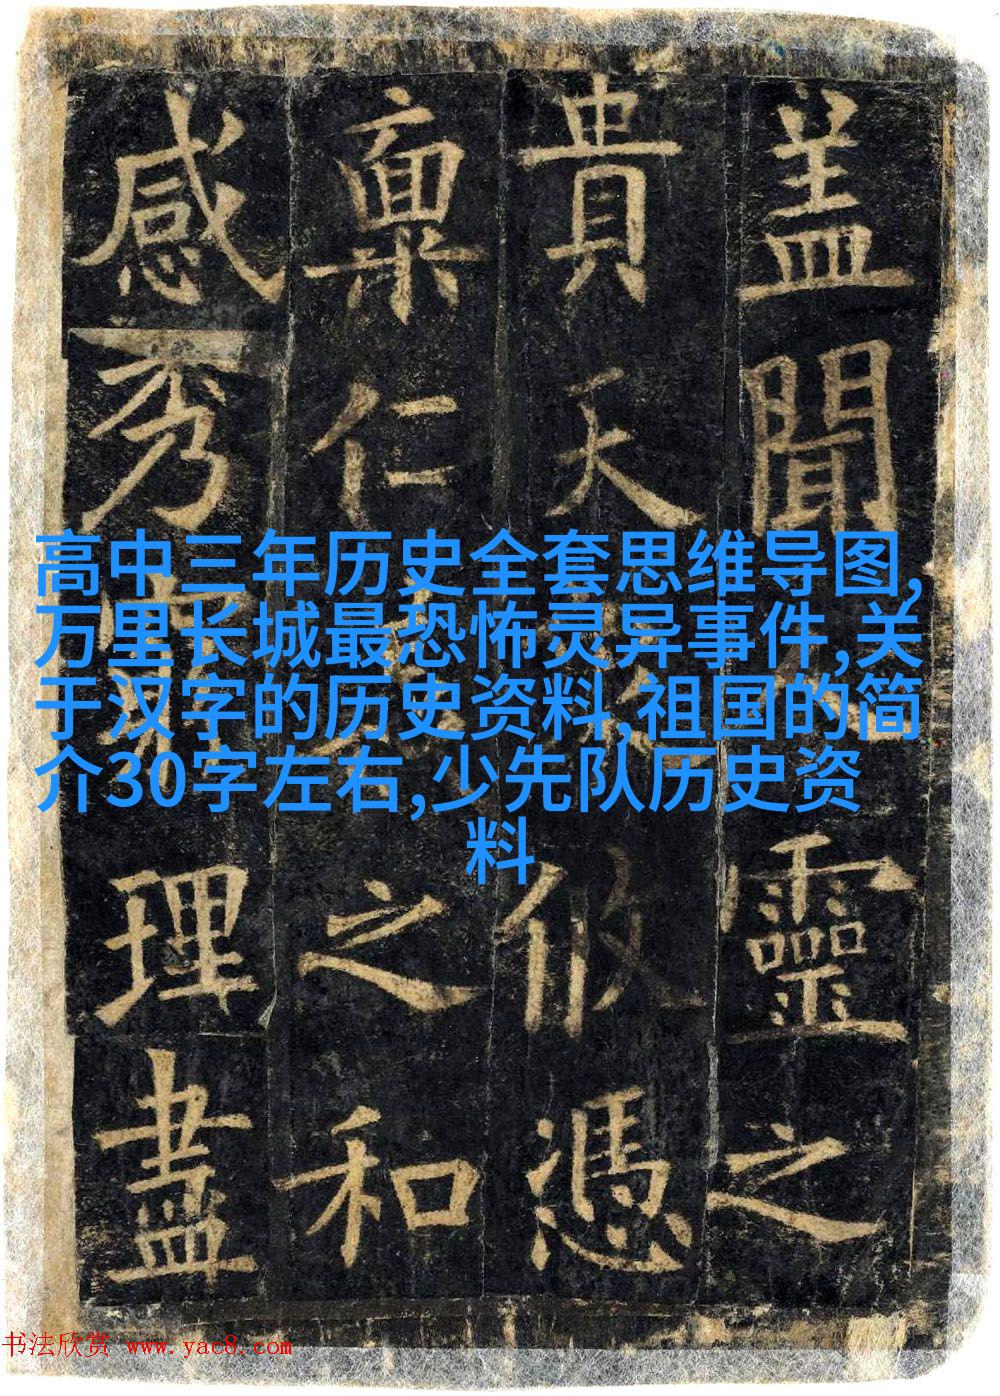 盖聞靈之
貴天攸憑
稟仁之和
感秀理盡
高中三年历史全套思维导图,
万里长城最恐怖灵异事件,关
于汉字的历史资料,祖国的简
介30字左右,少先队历史资
料
书法欣赏 www.yac8.com